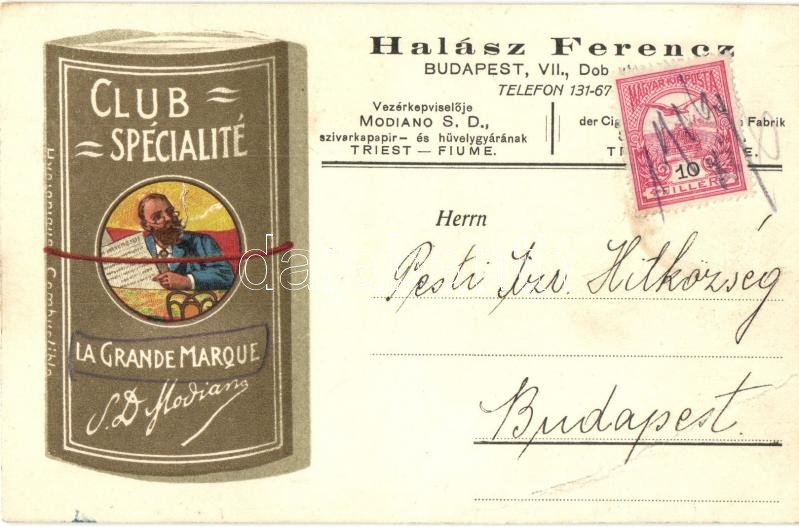 CLUB
SPÉCIALITÉ
LA GRANDE MARQUE
S. D. Modiano
Halász Ferencz
BUDAPEST, VII., Dob
TELEFON 131-67
Vezérképviselője
MODIANO S. D.,
szivarkapapir- és hüvelygyárának
TRIEST — FIUME.
der Cig Fabrik
MAGYAR KIR. POSTA
10
FILLÉR
Herrn
Pesti Izr. Hitközség
Budapest.